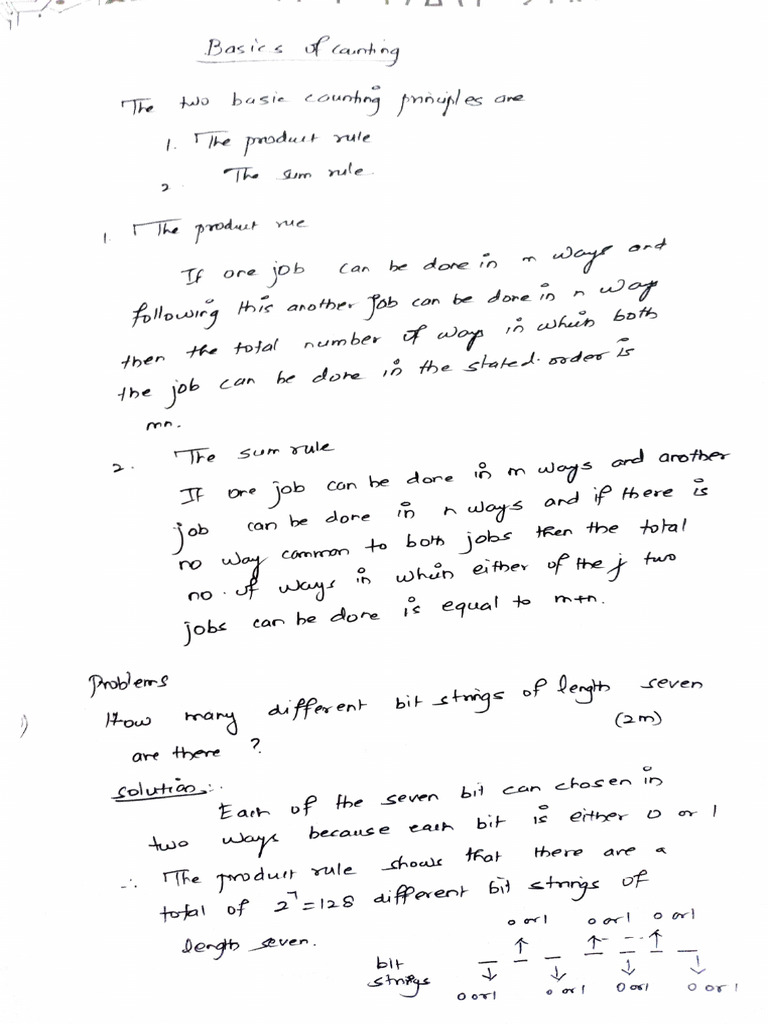 Basics of counting
The two basic counting principles are
1. The product rule
2. The sum rule.
1. The product rue
If one job can be done in m ways and
following this another job can be done in n way
then the total number of ways in which both
the job can be done in the stated order is
mn.
2. The sum rule
If one job can be done in m ways and another
job can be done in n ways and if there is
no way common to both jobs then the total
no. of ways in which either of the j two
jobs can be done is equal to m+n.
Problems
1) How many different bit strings of length seven
are there ? (2m)
solution:.
Each of the seven bit can chosen in
two ways because each bit is either 0 or 1
∴ The product rule shows that there are a
total of 2^7 = 128 different bit strings of
length seven.
0 or 1 0 or 1 0 or 1
bit
strings
0 or 1 0 or 1 0 or 1 0 or 1